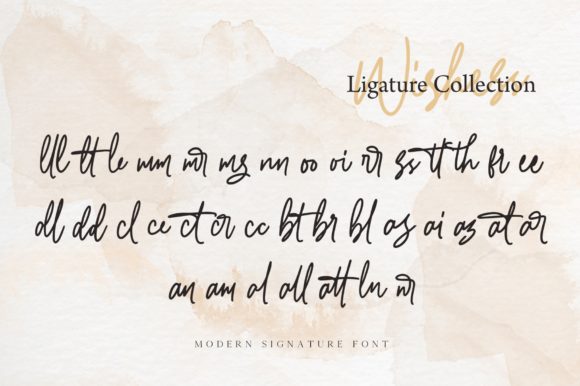 Ligature Collection
ll tt le mm mr mg nn oo oi rr th fr ee
dl dd cl ce ct cr cc bt br bl ai at ar
an am al all att ln
MODERN SIGNATURE FONT